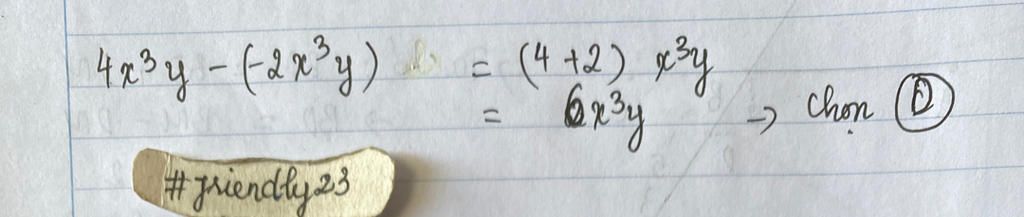 4x³y - (-2x³y) = (4+2) x³y
= 6x³y → Chọn D
#friendly23